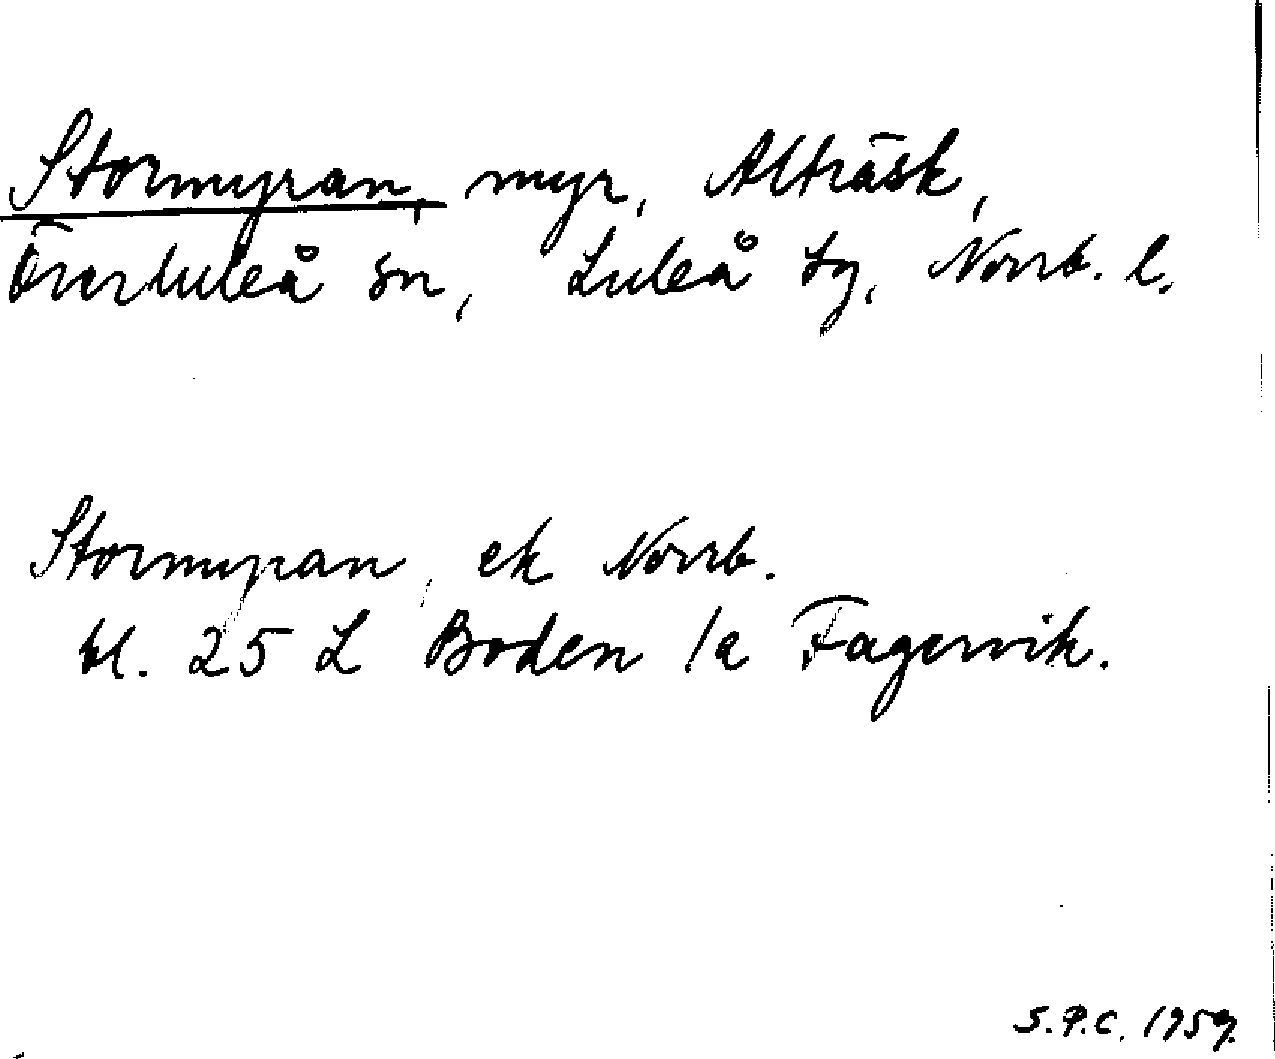 Stormyran, myr, Alträsk,
Överluleå sn, Luleå tg, Norrb. l.
Stormyran, ek Norrb.
bl. 25 L Boden 1a Fagervik.
S.P.C. 1959.